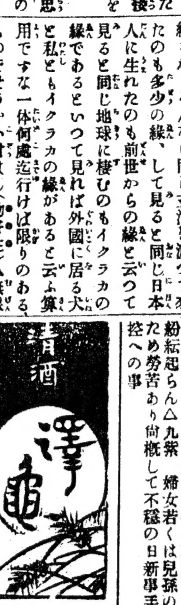 たのも多少の緣、して見ると同じ日本
人に生れたのも前世からの緣と云つて
見ると同じ地球に棲むのもイクラカの
緣であるといつて見れば外國に居る犬
と私ともイクラカの緣があると云ふ算
用ですな一体何處迄行けば限りのある
紛紜起らん△九紫　婦女若くは兒孫の
ため勞苦あり尙概して不穩の日新事手
控への事
清酒
澤龜